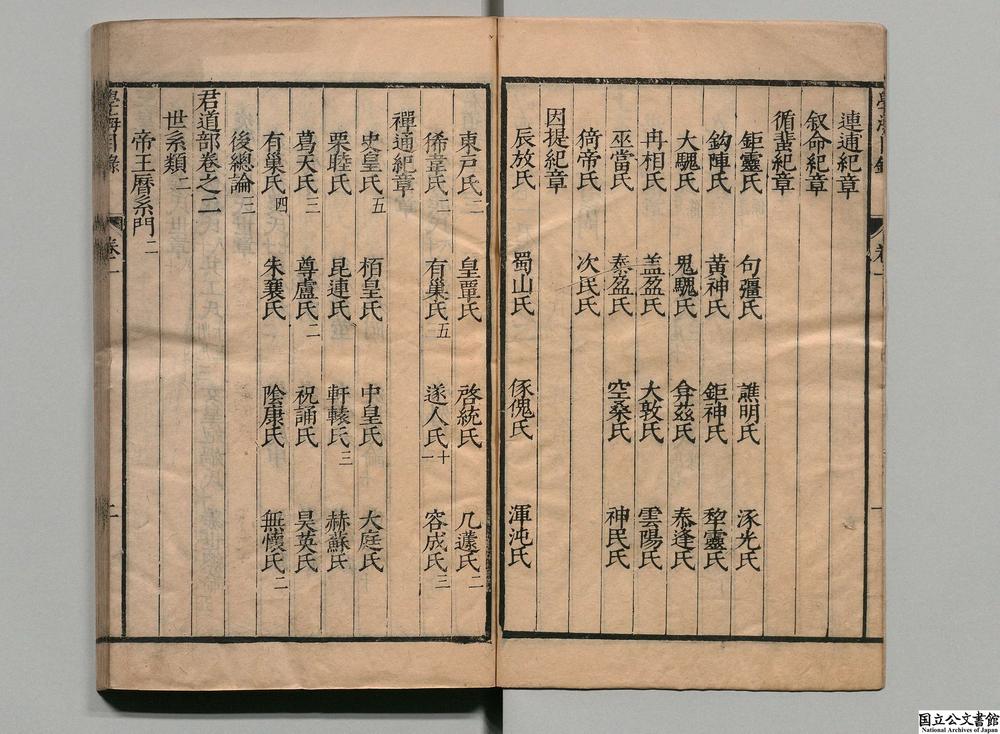 連通紀章
叙命紀章
循蜚紀章
鉅靈氏 句彊氏 譙明氏 涿光氏
鈎陣氏 黄神氏 鉅神氏 犂靈氏
大騩氏 鬼騩氏 弇兹氏 泰逢氏
冉相氏 盖盈氏 大敦氏 雲陽氏
巫當氏 泰盈氏 空桑氏 神民氏
倚帝氏 次民氏
因提紀章
辰放氏 蜀山氏 豗傀氏 渾沌氏
東戶氏二 皇覃氏 啓統氏 几蘧氏二
狶韋氏二 有巢氏五 遂人氏十一 容成氏三
禪通紀章
史皇氏五 栢皇氏 中皇氏 大庭氏
栗睦氏 昆連氏 軒轅氏三 赫蘇氏
葛天氏三 尊盧氏二 祝誦氏 昊英氏
有巢氏四 朱襄氏 陰康氏 無懷氏二
後總論三
君道部卷之二
世系類二
帝王曆系門二
學海目錄 卷一 二
国立公文書館
National Archives of Japan